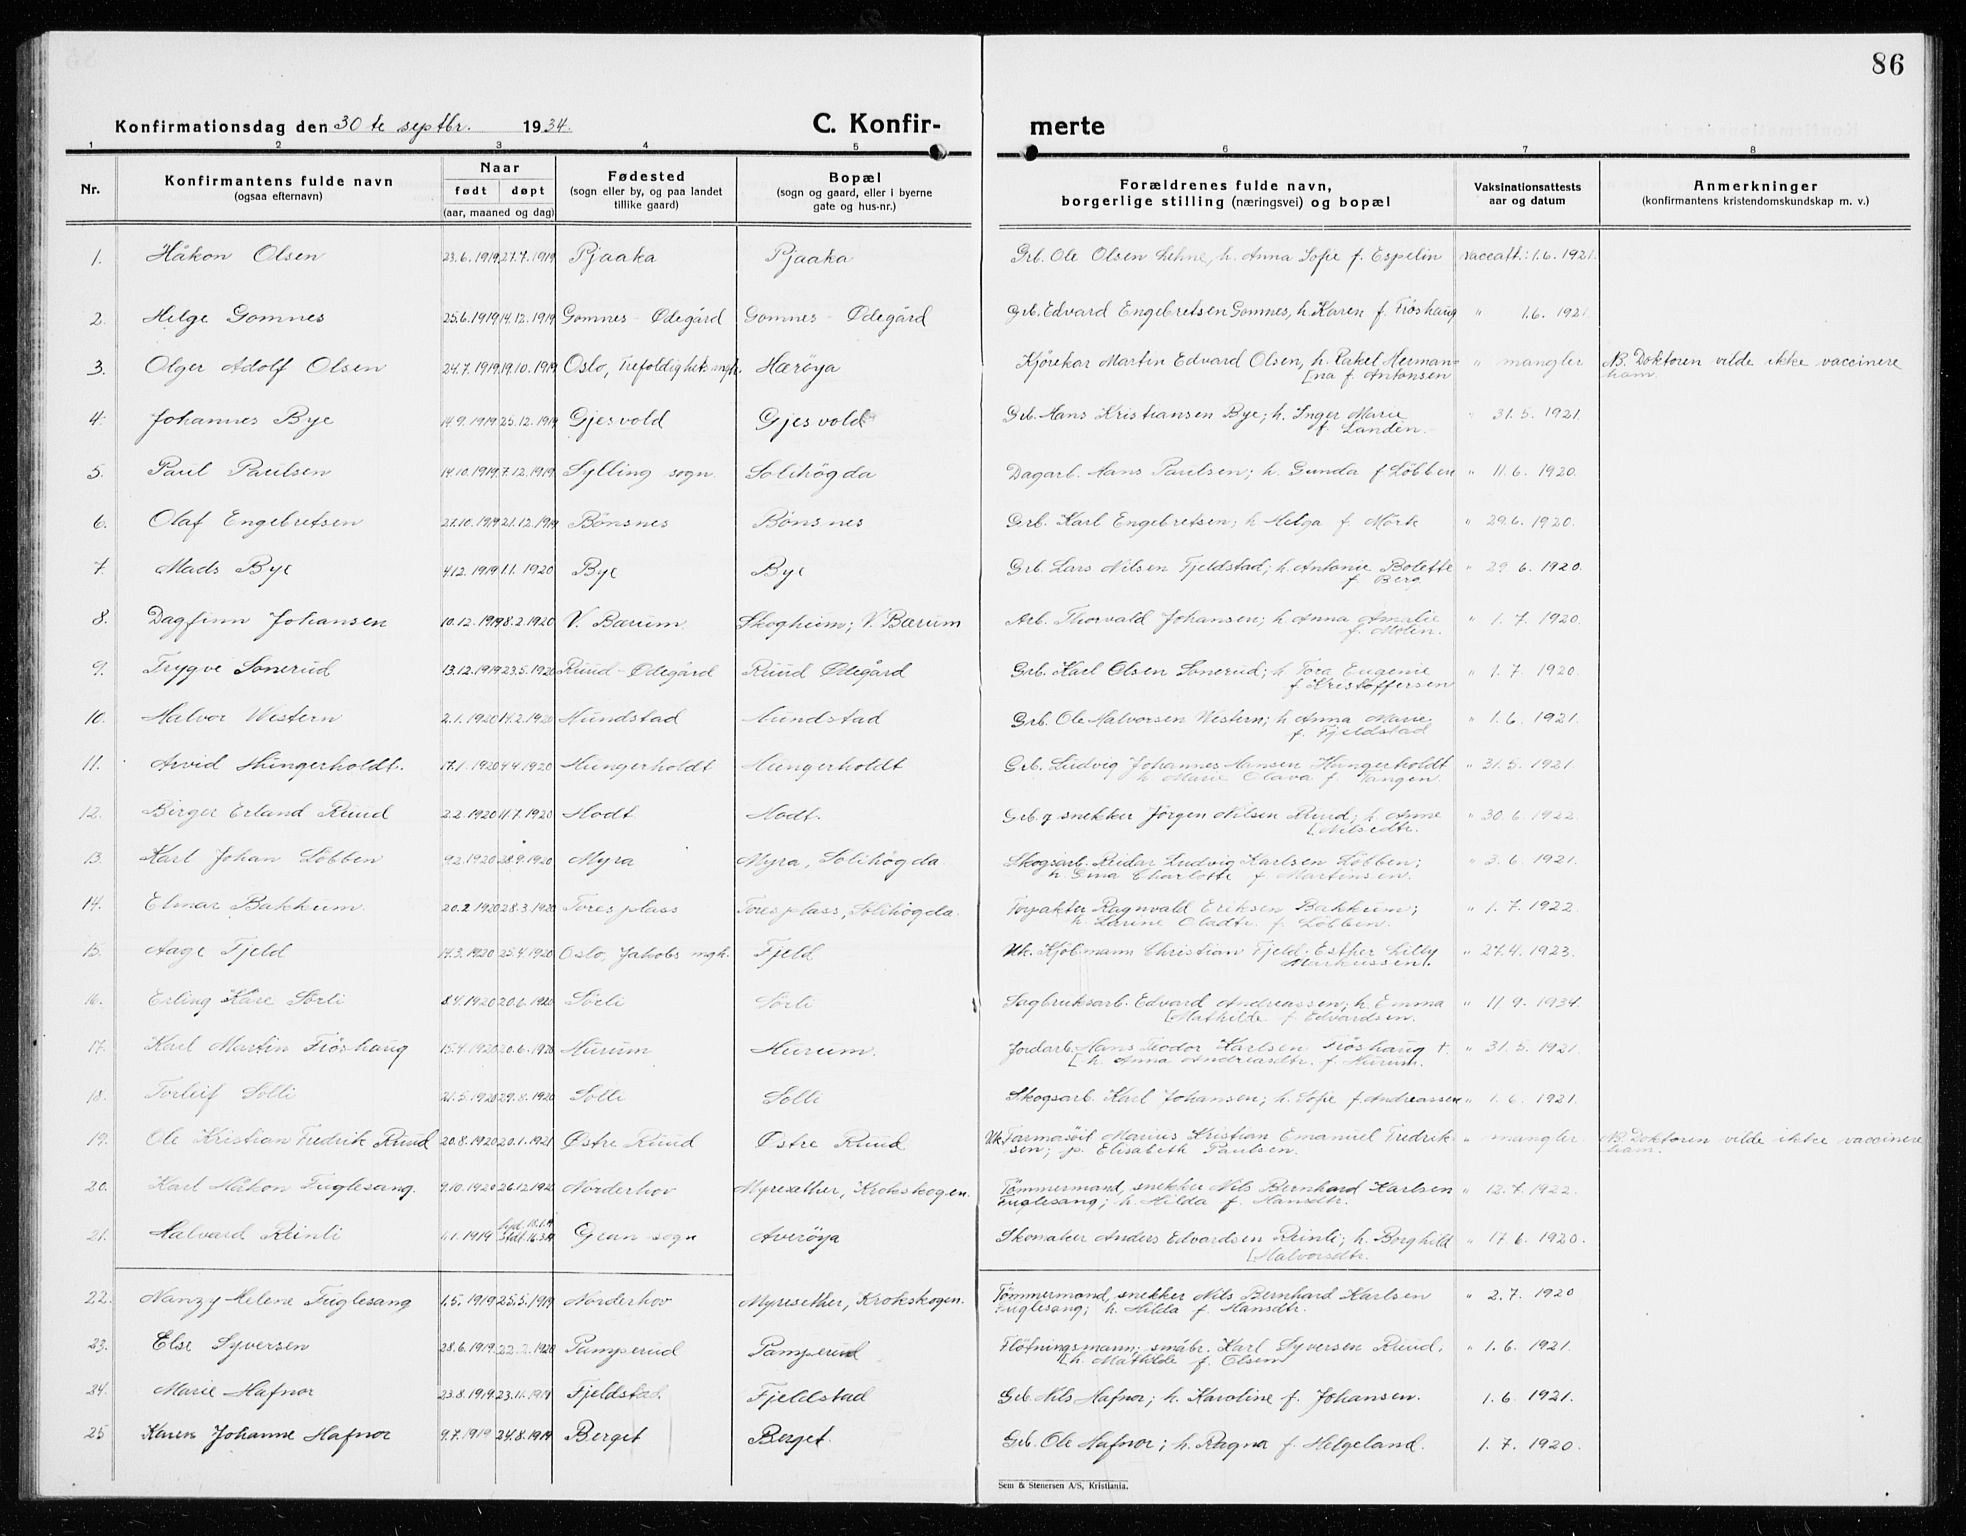 86
Konfirmationsdag den 30 te septbr. 1934.
C. Konfir- merte
1 2 3 4 5 6 7 8
Nr.
Konfirmantens fulde navn
(ogsaa efternavn)
Naar
født døpt
(aar, maaned og dag)
Fødested
(sogn eller by, og paa landet
tillike gaard)
Bopæl
(sogn og gaard, eller i byerne
gate og hus-nr.)
Forældrenes fulde navn,
borgerlige stilling (næringsvei) og bopæl
Vaksinationsattests
aar og datum
Anmerkninger
(konfirmantens kristendomskundskap m. v.)
1. Håkon Olsen 23.6.1919 27.7.1919 Pjaaka Pjaaka Grb. Ole Olsen Lehne, h. Anna Sofie f. Espelin Vaccatt.: 1.6.1921.
2. Helge Gomnes 25.6.1919 14.12.1919 Gomnes - Ødegård Gomnes - Ødegård Grb. Edvard Engebretsen Gomnes, h. Karen f. Frøshaug " 1.6.1921
3. Olger Adolf Olsen 24.7.1919 19.10.1919 Oslo, Trefoldighets mgh. Hærøya Kjørekar Martin Edvard Olsen, h. Rakel Herman=
[na f. Antonsen " mangler NB. Doktoren vilde ikke vaccinere
ham.
4. Johannes Bye 14.9.1919 25.12.1919 Gjesvold Gjesvold Grb. Hans Kristiansen Bye; h. Inger Marie
f. Landen. " 31.5.1921.
5. Paul Paulsen 14.10.1919 7.12.1919 Sylling sogn. Solihögda Dagarb. Hans Paulsen; h. Gunda f. Löbben " 11.6.1920.
6. Olaf Engebretsen 21.10.1919 21.12.1919 Bönsnes Bönsnes Grb. Karl Engebretsen; h. Helga f. Mörk " 29.6.1920.
7. Mads Bye 4.12.1919 1.1.1920 Bye Bye Grb. Lars Nilsen Fjeldstad; h. Antonie Bolette
f. Berg " 29.6.1920.
8. Dagfinn Johansen 10.12.1919 8.2.1920 V. Bærum. Skoghum; V. Bærum Arb. Thorvald Johansen; h. Anna Amalie
f. Molin. " 1.7.1920.
9. Trygve Sonerud 13.12.1919 23.5.1920 Ruud - Ødegård Ruud Ødegård Grb. Karl Olsen Sonerud; h. Tora Eugenie
f. Kristoffersen " 1.7.1920.
10. Halvor Western 2.1.1920 14.2.1920 Hundstad Hundstad Grb. Ole Halvorsen Western; h. Anna Marie
f. Fjeldstad " 1.6.1921.
11. Arvid Hungerholdt. 17.1.1920 4.4.1920 Hungerholdt Hungerholdt Grb. Ludvig Johannes Hansen Hungerholdt
h. Marie Olava f. Tangen. " 31.5.1921.
12. Birger Erland Ruud 2.2.1920 11.7.1920 Hodt. Hodt. Grb. g snekker Jørgen Nilsen Ruud; h. Anne
[Nilsedtr. " 30.6.1922.
13. Karl Johan Löbben 9.2.1920 28.9.1920 Myra Myra, Solihögda. Skogsarb. Reidar Ludvig Karlsen Löbben;
h. Gina Charlotte f. Martinsen. " 3.6.1921.
14. Elmar Bakkum. 20.2.1920 28.3.1920 Toresplass Toresplass, Solihögda. Forpakter Ragnvald Eriksen Bakkum;
h. Larine Oladtr. f. Löbben. " 1.7.1922.
15. Aage Fjeld 14.3.1920 25.4.1920 Oslo, Jakobs mgh. Fjeld Uk. Kjöbmann Christian Fjeld. Esther Lilly
Markussen. " 27.4.1923.
16. Erling Kåre Sørli 8.4.1920 20.6.1920 Sörli Sörli Sagbruksarb. Edvard Andreassen; h. Emma
[Mathilde f. Edvardsen. " 11.9.1934.
17. Karl Martin Fröshaug 15.4.1920 20.6.1920 Hurum Hurum. Jordarb. Hans Teodor Karlsen Fröshaug t.
[h. Anna Andreasdtr. f. Hurum. " 31.5.1921.
18. Torleif Solli 21.5.1920 29.8.1920 Solli Solli Skogsarb. Karl Johansen; h. Sofie f. Andreassen " 1.6.1921.
19. Ole Kristian Fredrik Ruud 20.8.1920 20.1.1921 Østre Ruud Østre Ruud Uk. Farmasöit Marius Kristian Emanuel Fredrik-
sen; p. Elisabeth Paulsen. " mangler NB. Doktoren vilde ikke vaccinere
ham.
20. Karl Håkon Fuglesang. 9.10.1920 26.12.1920 Norderhov Myresæther, Krokskogen. Tömmermand, snekker Nils Bernhard Karlsen
Fuglesang; h. Hilda f. Hansdtr. " 12.7.1922.
21. Halvard Reinli 4.1.1919 Gran sogn Averöya Skomaker Anders Edvardsen Reinli; h. Borghild
[Halvorsdtr. " 17.6.1920.
22. Nanzy Helene Fuglesang 1.5.1919 25.5.1919 Norderhov Myresether, Krokskogen. Tömmermand, snekker Nils Bernhard Karlsen
Fuglesang; h. Hilda f. Hansdtr. " 2.7.1920
23. Else Syversen 28.6.1919 22.2.1920 Pamperud Pamperud Flötningsmann, småbr. Karl Syversen Ruud,
[h. Mathilde f. Olsen " 1.6.1921.
24. Marie Hafnor 23.8.1919 23.11.1919 Fjeldstad Fjeldstad Grb. Nils Hafnor; h. Karoline f. Johansen. 1.6.1921.
25 Karen Johanne Hafnor 9.7.1919 24.8.1919 Berget Berget. Grb. Ole Hafnor; h. Ragna f. Helgeland. 1.7.1920.
Sem & Stenersen A/S, Kristiania.